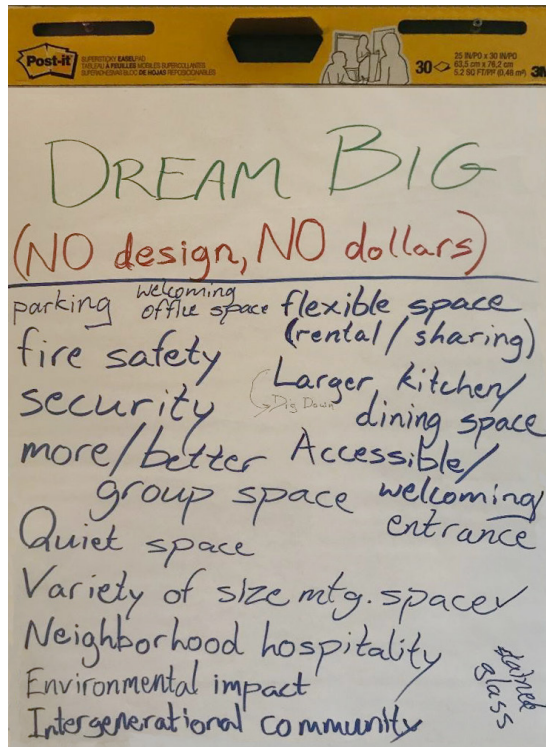 Post-it
SUPERSTICKY EASEL PAD
TABLEAU À FEUILLES MOBILES SUPERCOLLANTES
SUPERADHESIVAS BLOC DE HOJAS REPOSICIONABLES
30
25 IN/PO x 30 IN/PO
63,5 cm x 76,2 cm
5.2 SQ FT/PI² (0,48 m²)
3M
DREAM BIG
(NO design, NO dollars)
parking
welcoming
office space
flexible space
(rental / sharing)
fire safety
Larger kitchen/
dining space
Dig Down
security
more/better
group space
Accessible/
welcoming
entrance
Quiet space
Variety of size mtg. space
Neighborhood hospitality
Environmental impact
Intergenerational community
stained
glass